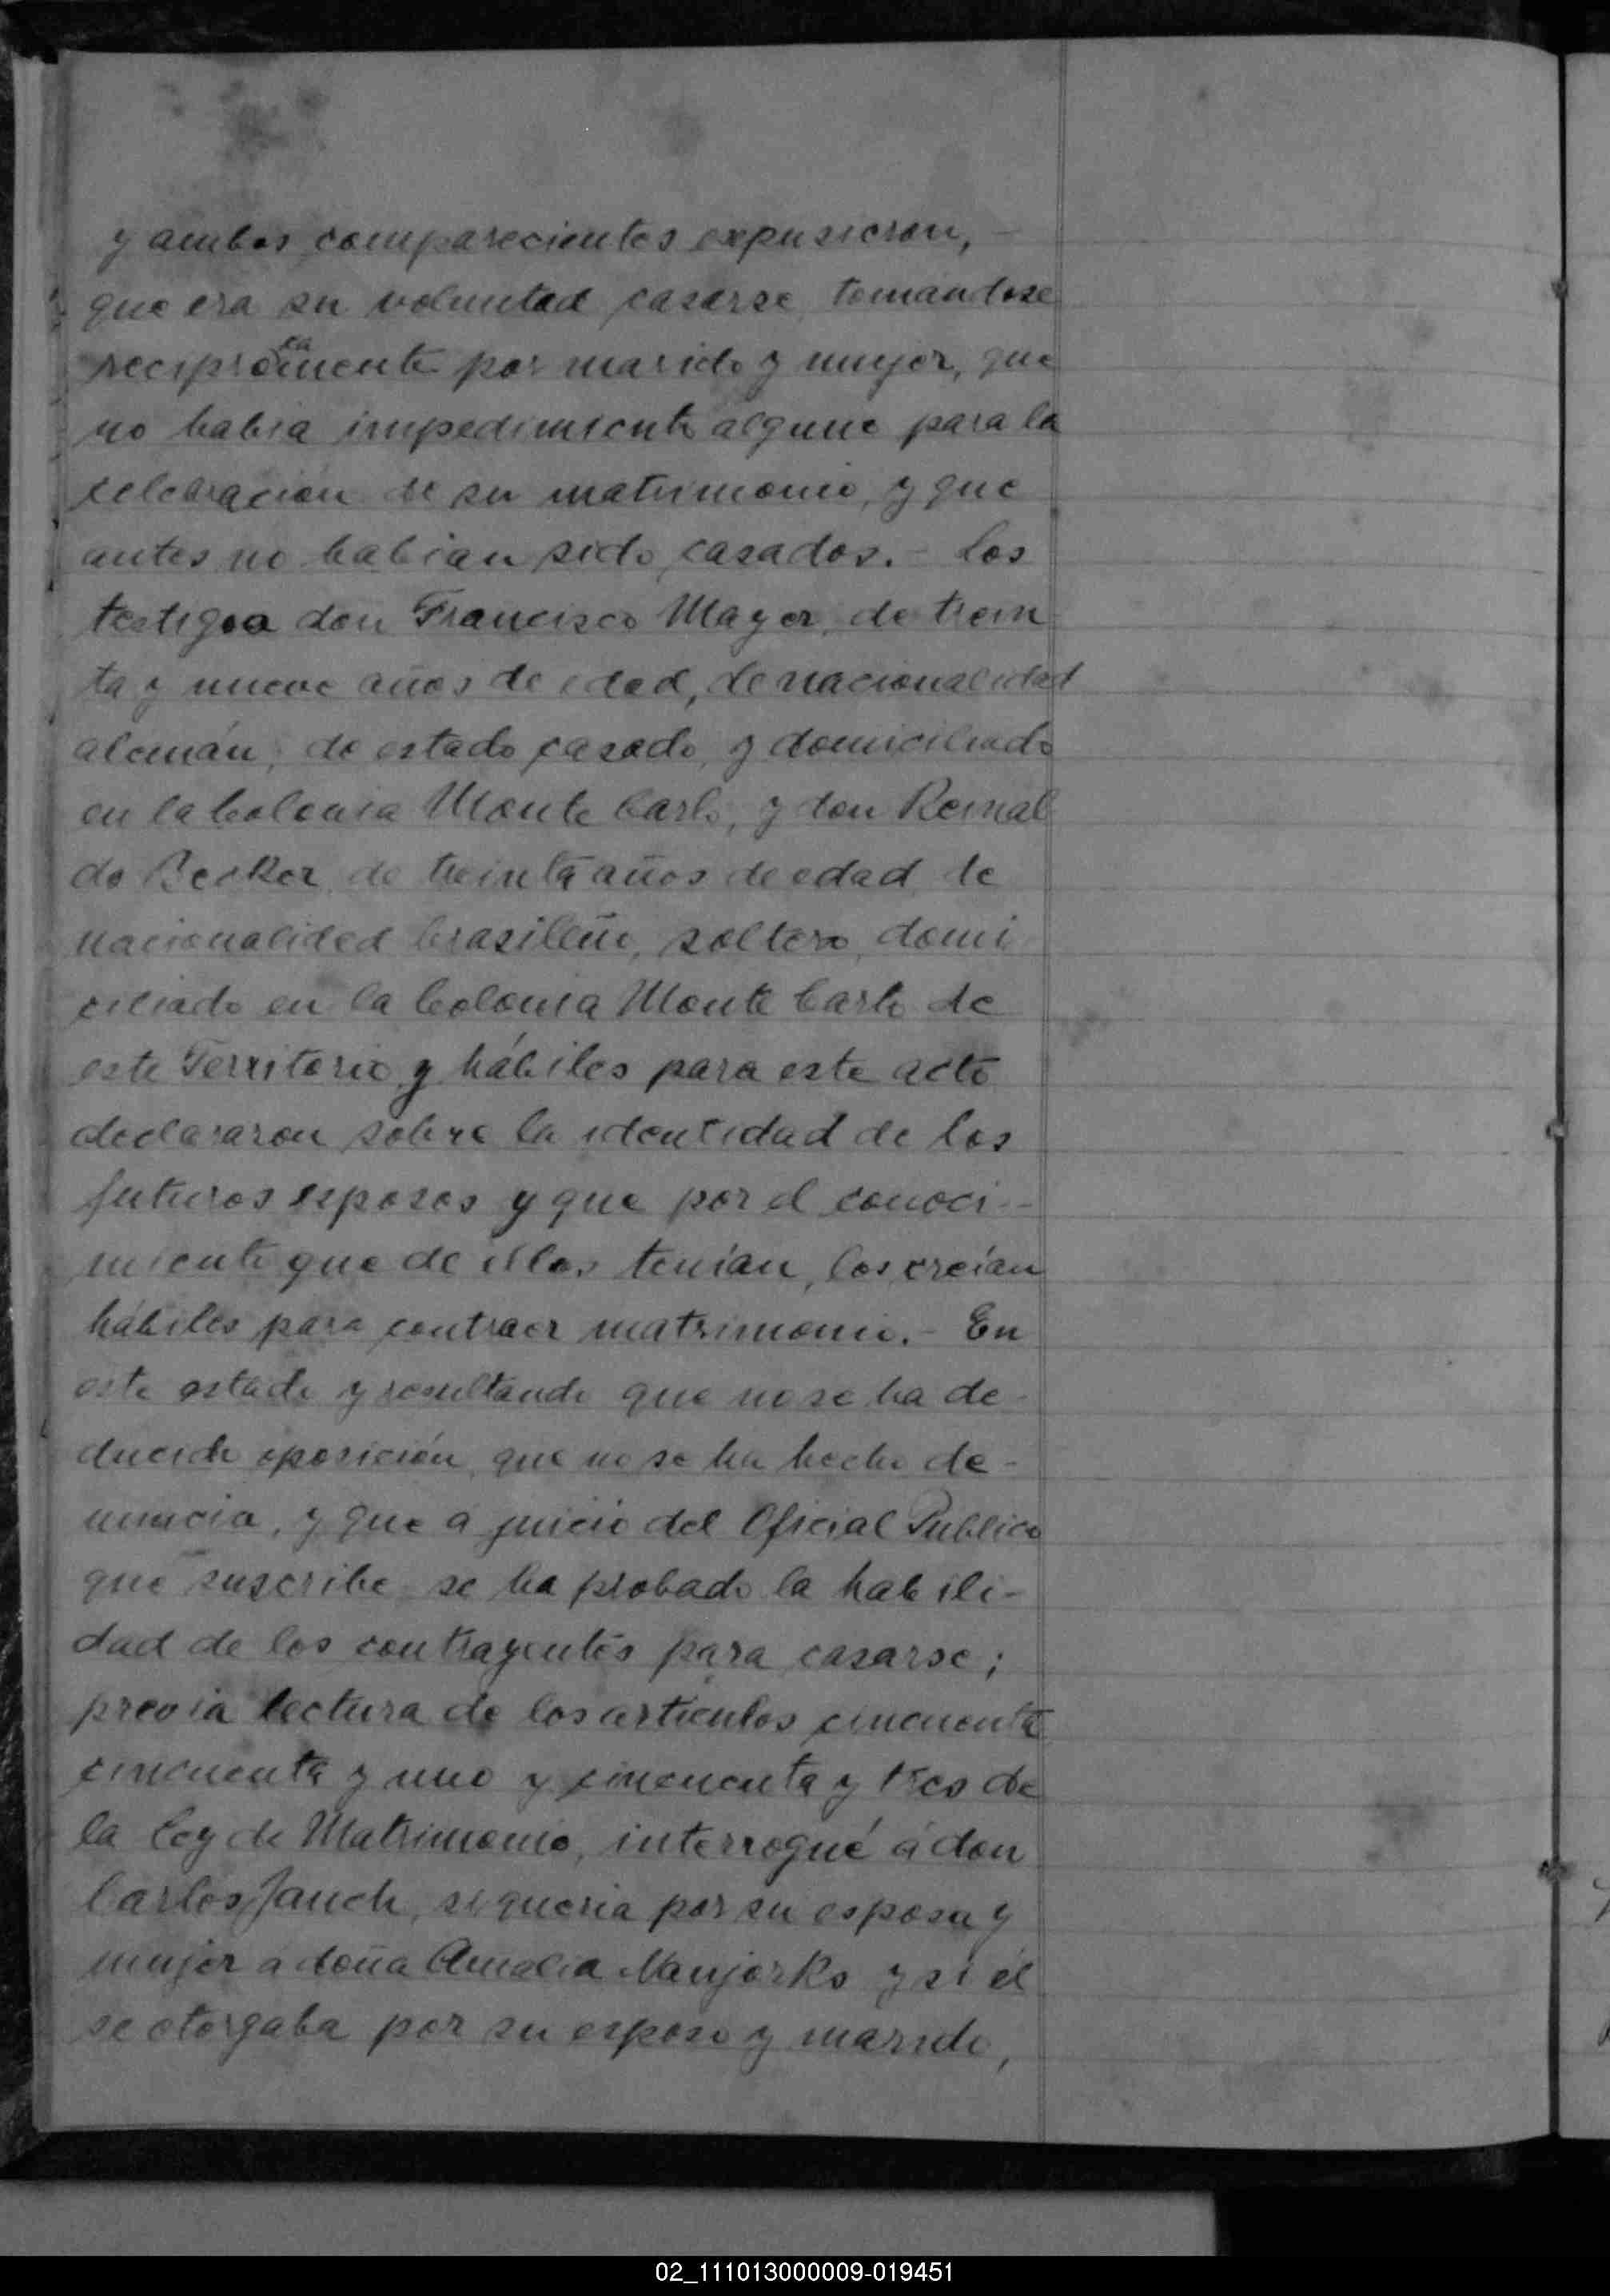 y ambos comparecientes expusieron, -
que era su voluntad casarse tomandose
reciprocamente por marido y mujer, que
no habia impedimiento alguno para la
celebración de su matrimonio, y que
antes no habian sido casados. - Los
testigos don Francisco Mayer, de trein
ta y nueve años de edad, de nacionalidad
alemán, de estado casado, y domiciliado
en la Colonia Monte Carlo, y don Reinal
do Becker de treinta años de edad de
nacionalidad brasileño, soltero, domi
ciliado en la Colonia Monte Carlo de
este Territorio y hábiles para este acto
declararon sobre la identidad de los
futuros esposos y que por el conoci--
miento que de ellos tenían, los creían
hábiles para contraer matrimonio. - En
este estado y resultando que no se ha de-
ducido oposición, que no se ha hecho de-
nuncia, y que a juicio del Oficial Publico
que suscribe se ha probado la habili-
dad de los contrayentes para casarse;
previa lectura de los articulos cincuenta
cincuenta y uno y cincuenta y tres de
la Ley de Matrimonio, interrogué á don
Carlos Jauch, si queria por su esposa y
mujer a doña Amalia Naujorks y si él
se otorgaba por su esposo y marido,
02_111013000009-019451